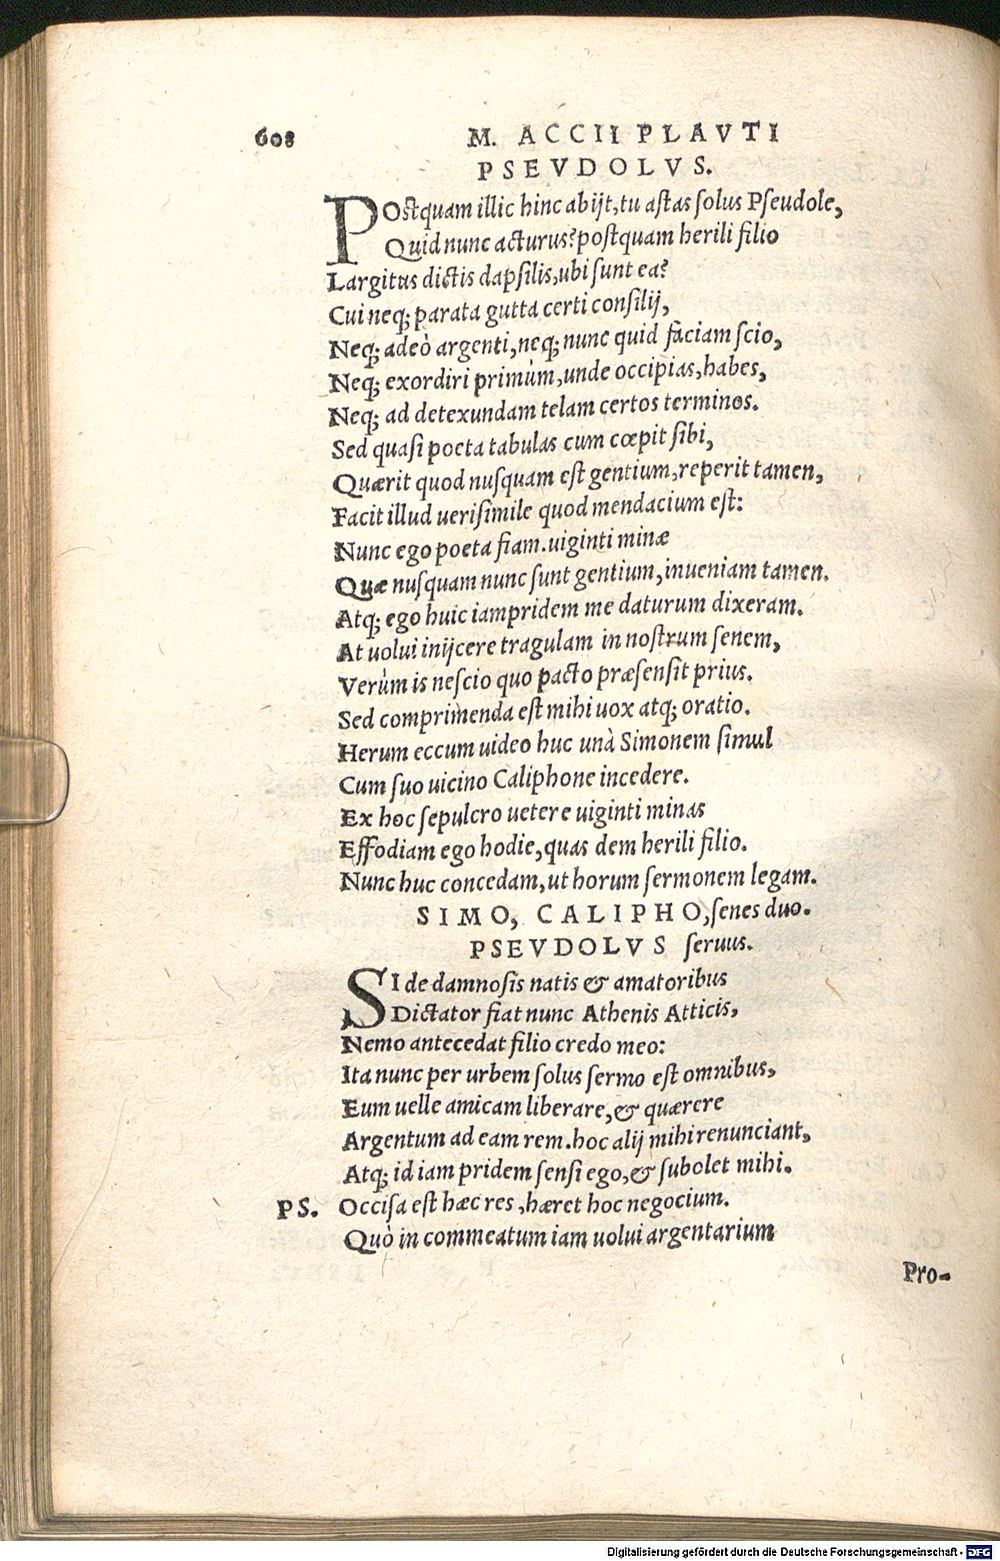 608 M. ACCII PLAVTI
PSEVDOLVS.
POstquam illic hinc abijt, tu astas solus Pseudole,
Quid nunc acturus? postquam herili filio
Largitus dictis dapsilis, ubi sunt ea?
Cui neq; parata gutta certi consilij,
Neq; adeò argenti, neq; nunc quid faciam scio,
Neq; exordiri primùm, unde occipias, habes,
Neq; ad detexundam telam certos terminos.
Sed quasi poeta tabulas cum cœpit sibi,
Quærit quod nusquam est gentium, reperit tamen,
Facit illud uerisimile quod mendacium est:
Nunc ego poeta fiam. uiginti minæ
Quæ nusquam nunc sunt gentium, inueniam tamen.
Atq; ego huic iampridem me daturum dixeram.
At uolui inijcere tragulam in nostrum senem,
Verùm is nescio quo pacto præsensit prius.
Sed comprimenda est mihi uox atq; oratio.
Herum eccum uideo huc unà Simonem simul
Cum suo uicino Caliphone incedere.
Ex hoc sepulcro uetere uiginti minas
Effodiam ego hodie, quas dem herili filio.
Nunc huc concedam, ut horum sermonem legam.
SIMO, CALIPHO, senes duo.
PSEVDOLVS seruus.
SI de damnosis natis & amatoribus
Dictator fiat nunc Athenis Atticis,
Nemo antecedat filio credo meo:
Ita nunc per urbem solus sermo est omnibus,
Eum uelle amicam liberare, & quærere
Argentum ad eam rem. hoc alij mihi renunciant,
Atq; id iam pridem sensi ego, & subolet mihi.
PS. Occisa est hæc res, hæret hoc negocium.
Quò in commeatum iam uolui argentarium
Pro-
Digitalisierung gefördert durch die Deutsche Forschungsgemeinschaft - DFG